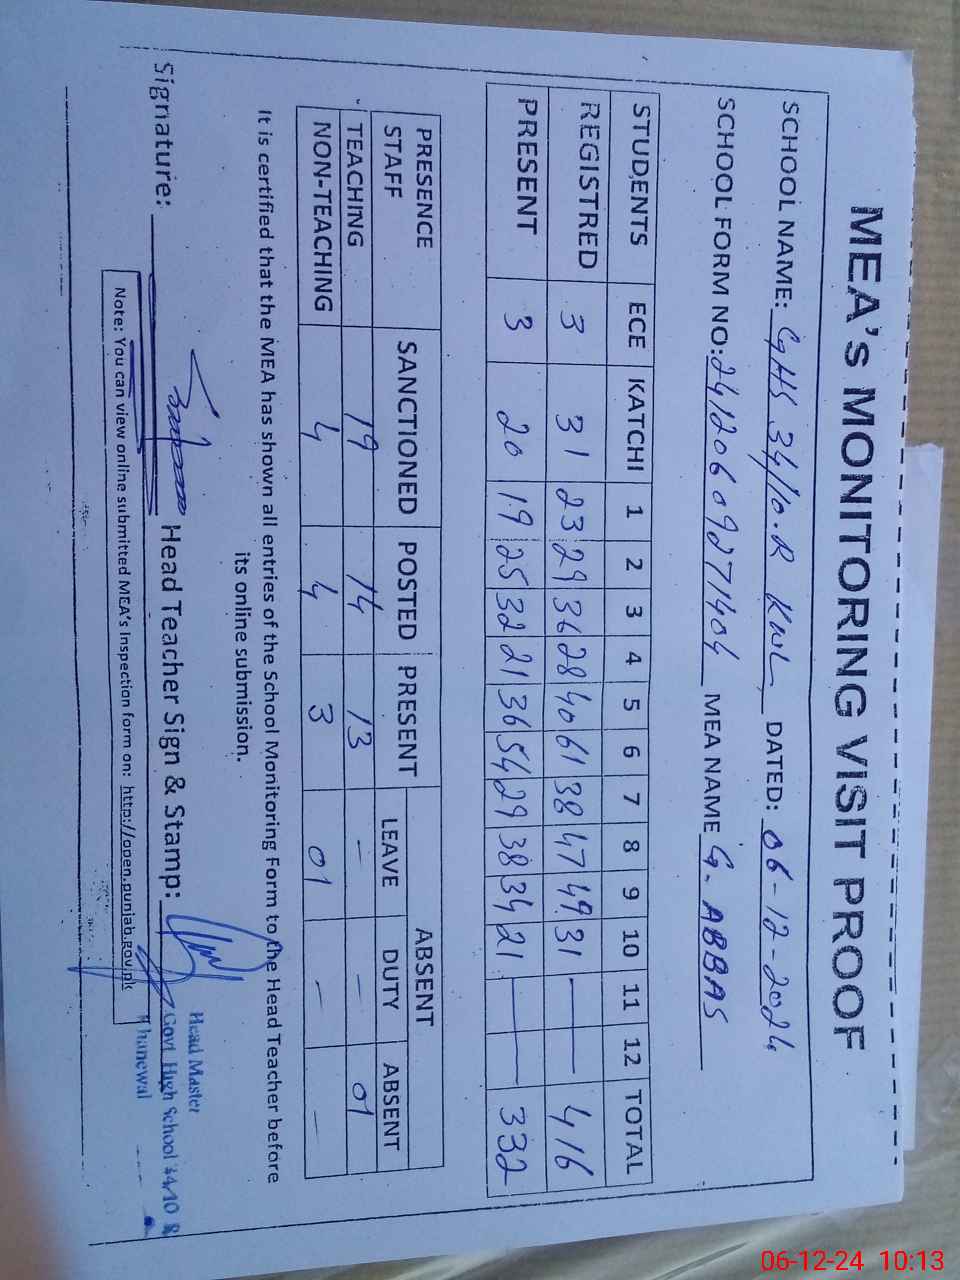 MEA's MONITORING VISIT PROOF
SCHOOL NAME: GHS 34/10.R KWL DATED: 06-12-2024
SCHOOL FORM NO: 24120609271404 MEA NAME G. ABBAS
STUDENTS ECE KATCHI 1 2 3 4 5 6 7 8 9 10 11 12 TOTAL
REGISTRED 3 31 23 29 36 28 40 61 38 47 49 31 — — 416
PRESENT 3 20 19 25 32 21 36 54 29 38 34 21 — — 332
PRESENCE STAFF SANCTIONED POSTED PRESENT ABSENT
LEAVE DUTY ABSENT
TEACHING 19 14 13 — — 01
NON-TEACHING 4 4 3 01 — —
It is certified that the MEA has shown all entries of the School Monitoring Form to the Head Teacher before
its online submission.
Signature: Head Teacher Sign & Stamp:
Head Master
Govt High School 34/10 R
Khanewal
Note: You can view online submitted MEA's Inspection form on: http://open.punjab.gov.pk
06-12-24 10:13